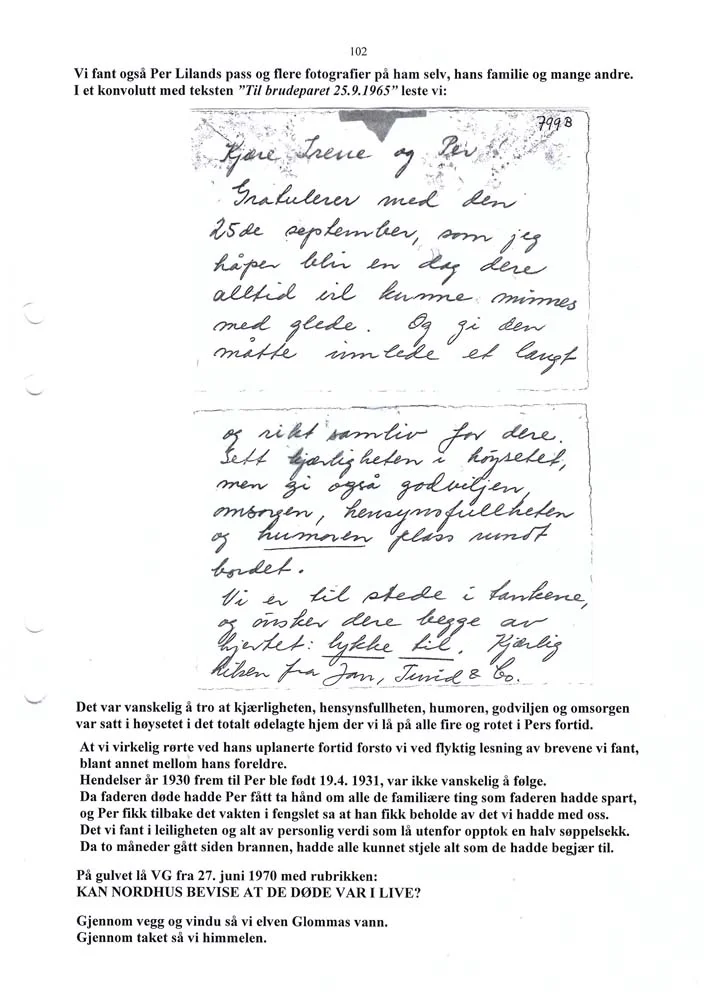 102
Vi fant også Per Lilands pass og flere fotografier på ham selv, hans familie og mange andre.
I et konvolutt med teksten ”Til brudeparet 25.9.1965” leste vi:
799B
Kjære Irene og Per
Gratulerer med den
25de september, som jeg
håper blir en dag dere
alltid vil kunne minnes
med glede. Og gi den
måtte innlede et langt
og rikt samliv for dere.
Sett kjærligheten i høysetet,
men gi også godviljen,
omsorgen, hensynsfullheten
og humoren plass rundt
bordet.
Vi er til stede i tankene,
og ønsker dere begge av
hjertet: lykke til. Kjærlig
hilsen fra Jan, Turid & Co.
Det var vanskelig å tro at kjærligheten, hensynsfullheten, humoren, godviljen og omsorgen
var satt i høysetet i det totalt ødelagte hjem der vi lå på alle fire og rotet i Pers fortid.
At vi virkelig rørte ved hans uplanerte fortid forsto vi ved flyktig lesning av brevene vi fant,
blant annet mellom hans foreldre.
Hendelser år 1930 frem til Per ble født 19.4. 1931, var ikke vanskelig å følge.
Da faderen døde hadde Per fått ta hånd om alle de familiære ting som faderen hadde spart,
og Per fikk tilbake det vakten i fengslet sa at han fikk beholde av det vi hadde med oss.
Det vi fant i leiligheten og alt av personlig verdi som lå utenfor opptok en halv søppelsekk.
Da to måneder gått siden brannen, hadde alle kunnet stjele alt som de hadde begjær til.
På gulvet lå VG fra 27. juni 1970 med rubrikken:
KAN NORDHUS BEVISE AT DE DØDE VAR I LIVE?
Gjennom vegg og vindu så vi elven Glommas vann.
Gjennom taket så vi himmelen.